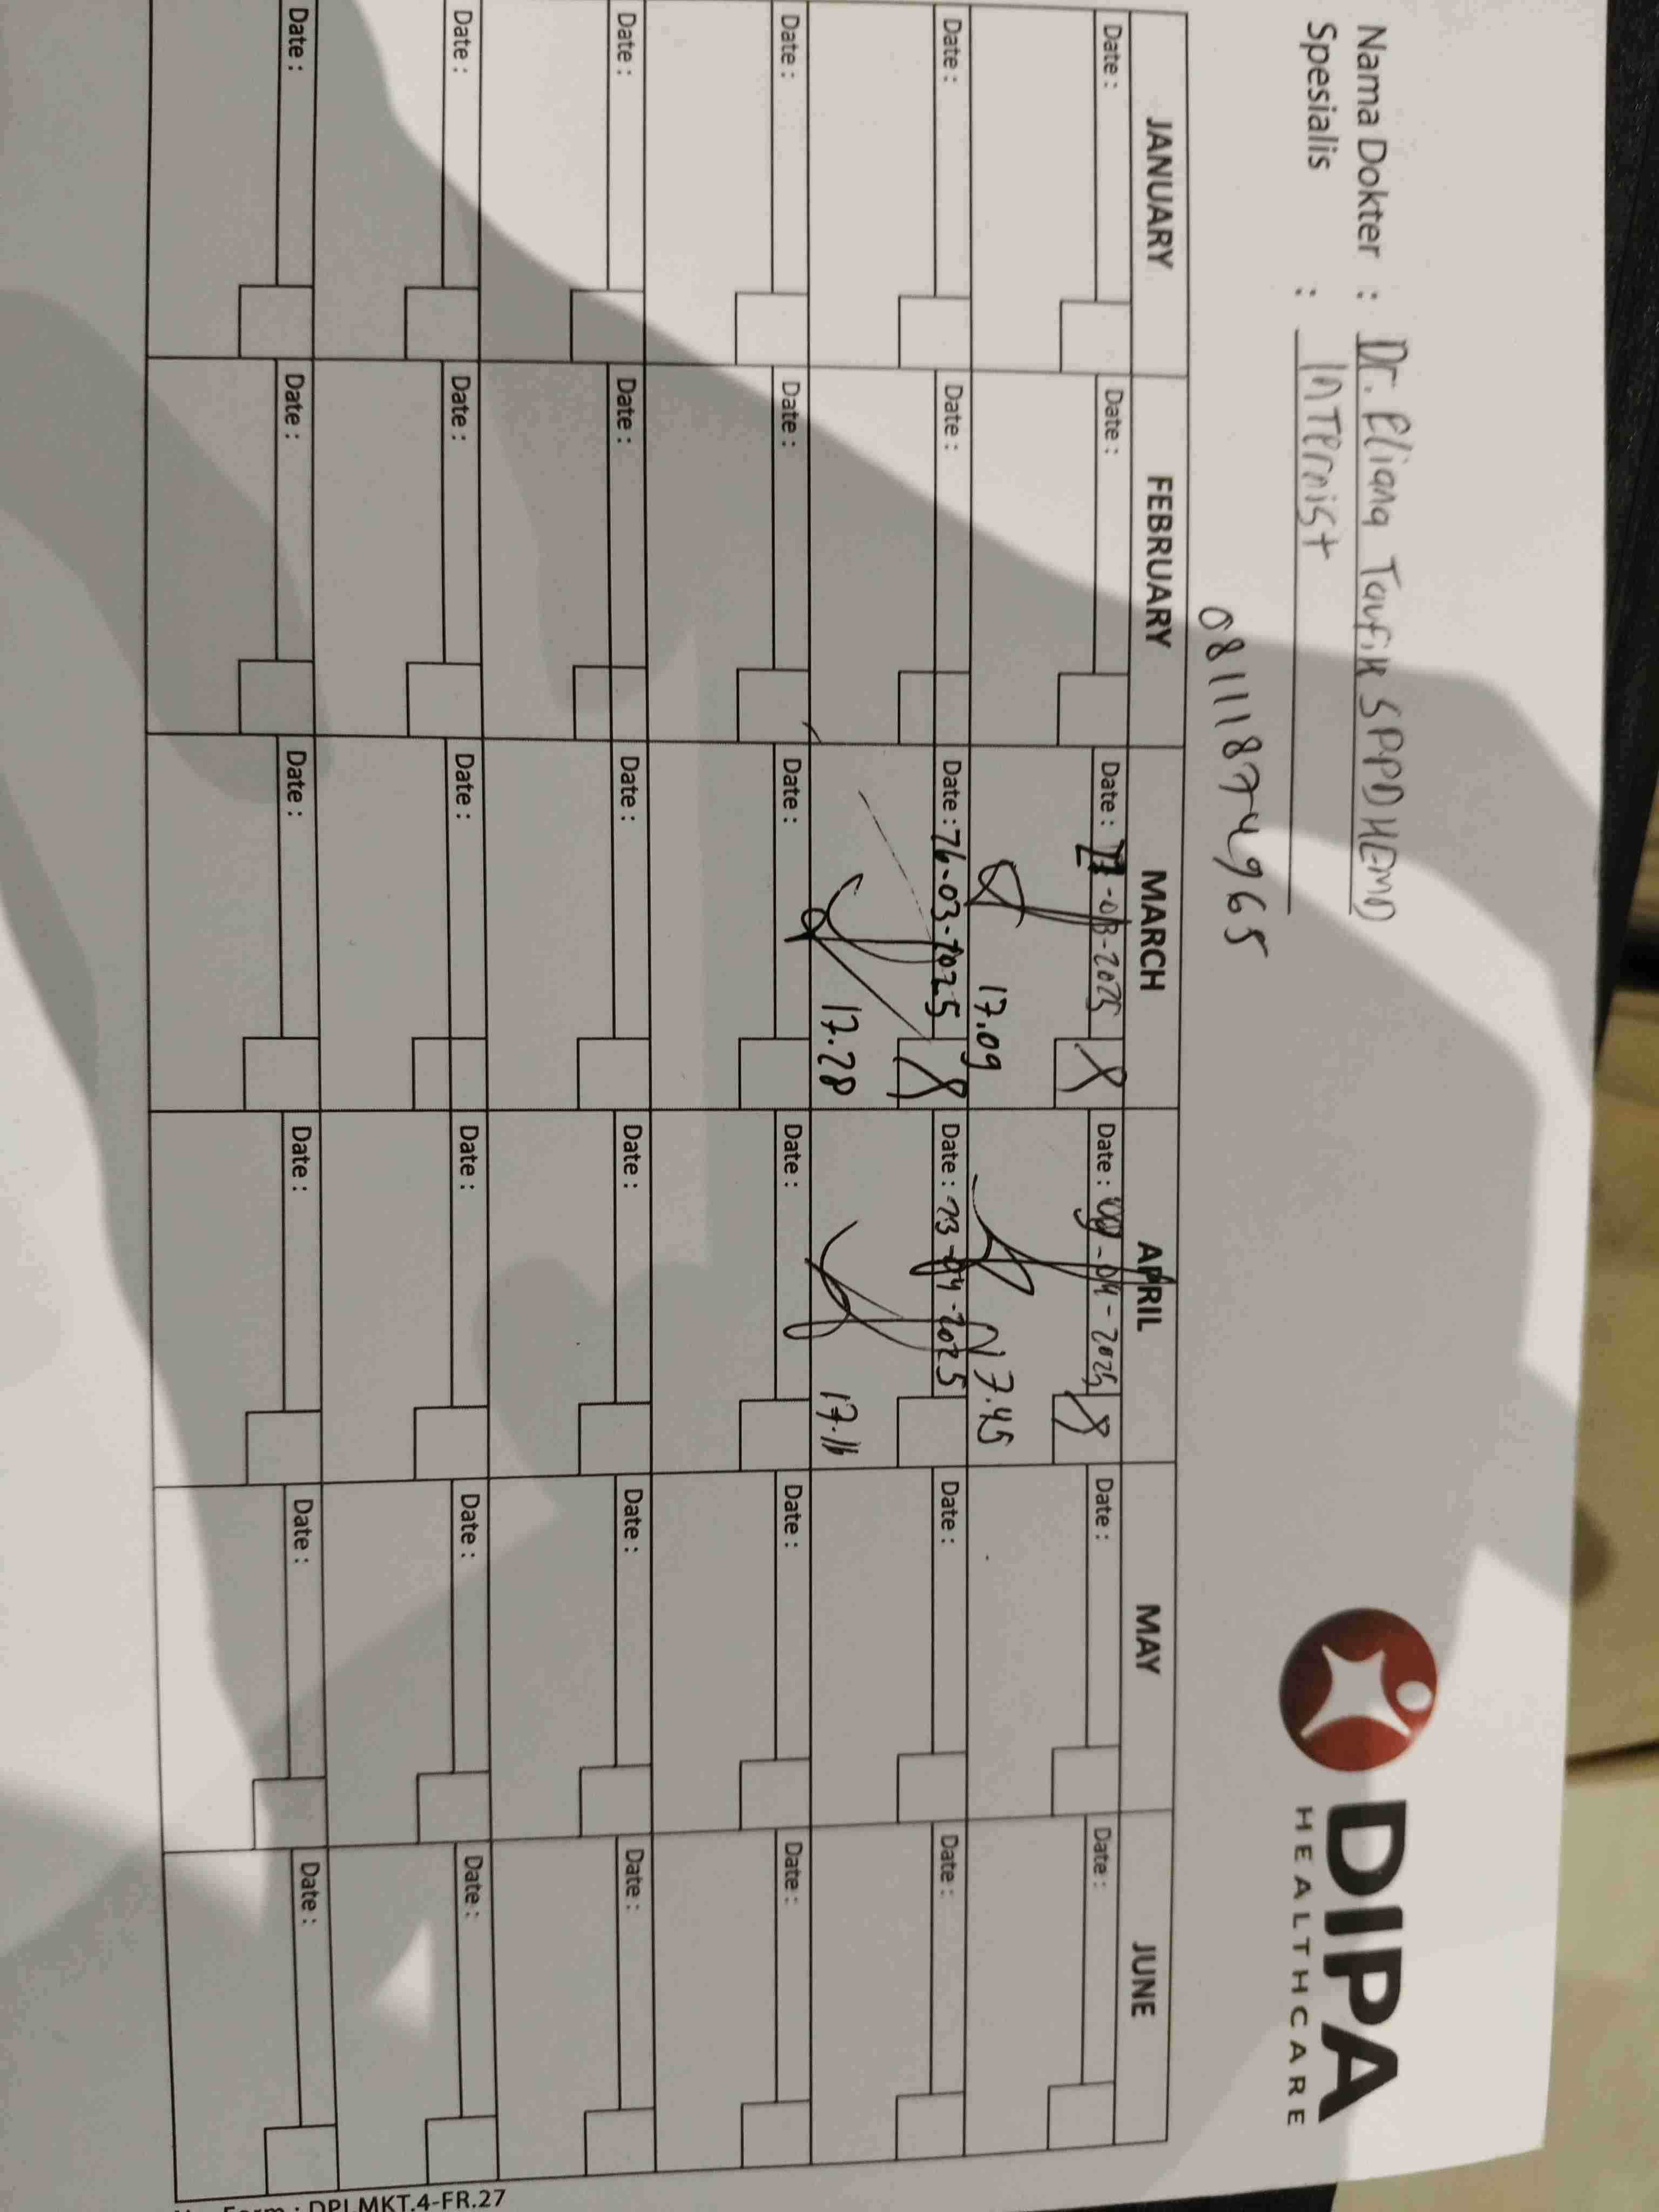 DIPA
HEALTHCARE
Nama Dokter : Dr. Eliana Taufik SPPDHEMO
Spesialis : Internist
08111874965
JANUARY FEBRUARY MARCH APRIL MAY JUNE
Date : Date : Date : -03-2025 Date : -04-2025 Date : Date :
17.09 17.45
Date : Date : Date : 26-03-2025 Date : 23-04-2025 Date : Date :
17.28 17.16
Date : Date : Date : Date : Date : Date :
Date : Date : Date : Date : Date : Date :
Date : Date : Date : Date : Date : Date :
Date : Date : Date : Date : Date : Date :
Form : DPLMKT.4-FR.27